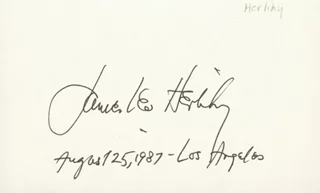 Herlihy
James Leo Herlihy
August 25, 1987 - Los Angeles